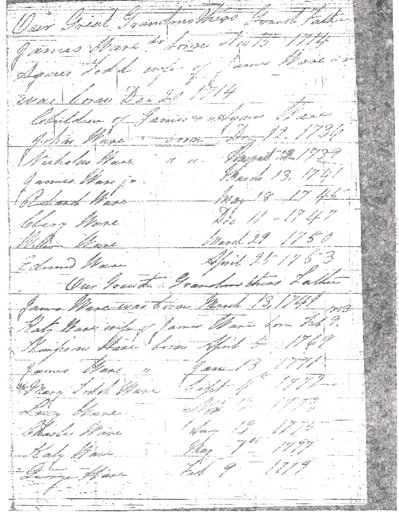 Our Great Grandmothers Grand Father
James Ware Sr born Nov 15 1714
Agnes Todd wife of James Ware Sr
was born Dec 20 1714
Children of James & Agnes Ware
John Ware born Dec 12. 1736
Nicholas Ware " " 1739
James Ware Jr. March 13. 1741
Richard Ware May 18 - 1745
Clary Ware Dec 11 - 1747
William Ware March 29 1750
Edmund Ware April 25 1753
Our Great Grandmothers Father
James Ware was born March 13, 1741
Katy Ware wife of James Ware born Feb
Thompson Ware born April 1769
James Ware " Jan 13 1771
Mary Todd Ware Sept 1772
Lucy Ware 1773
Charles Ware 1775
Katy Ware May 7th 1777
George Ware Feb 9 1779